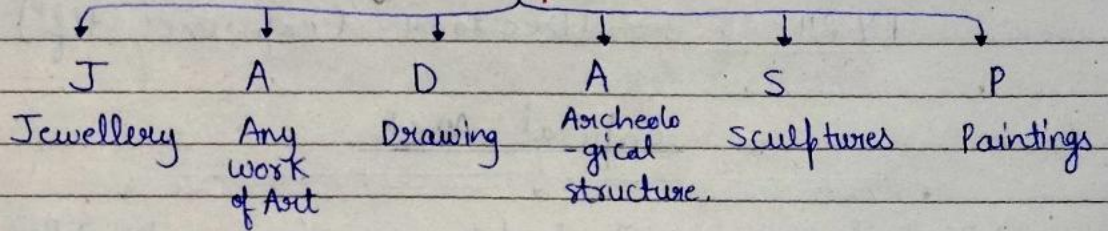 J A D A S P
Jewellery Any work of Art Drawing Archeolo-gical structure. Sculptures Paintings